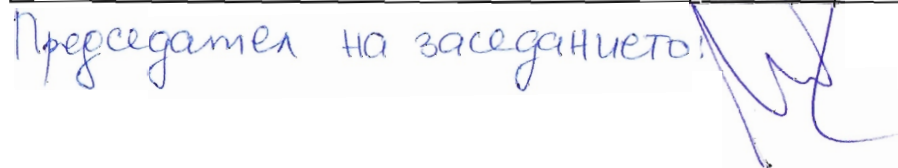 Председател на заседанието: